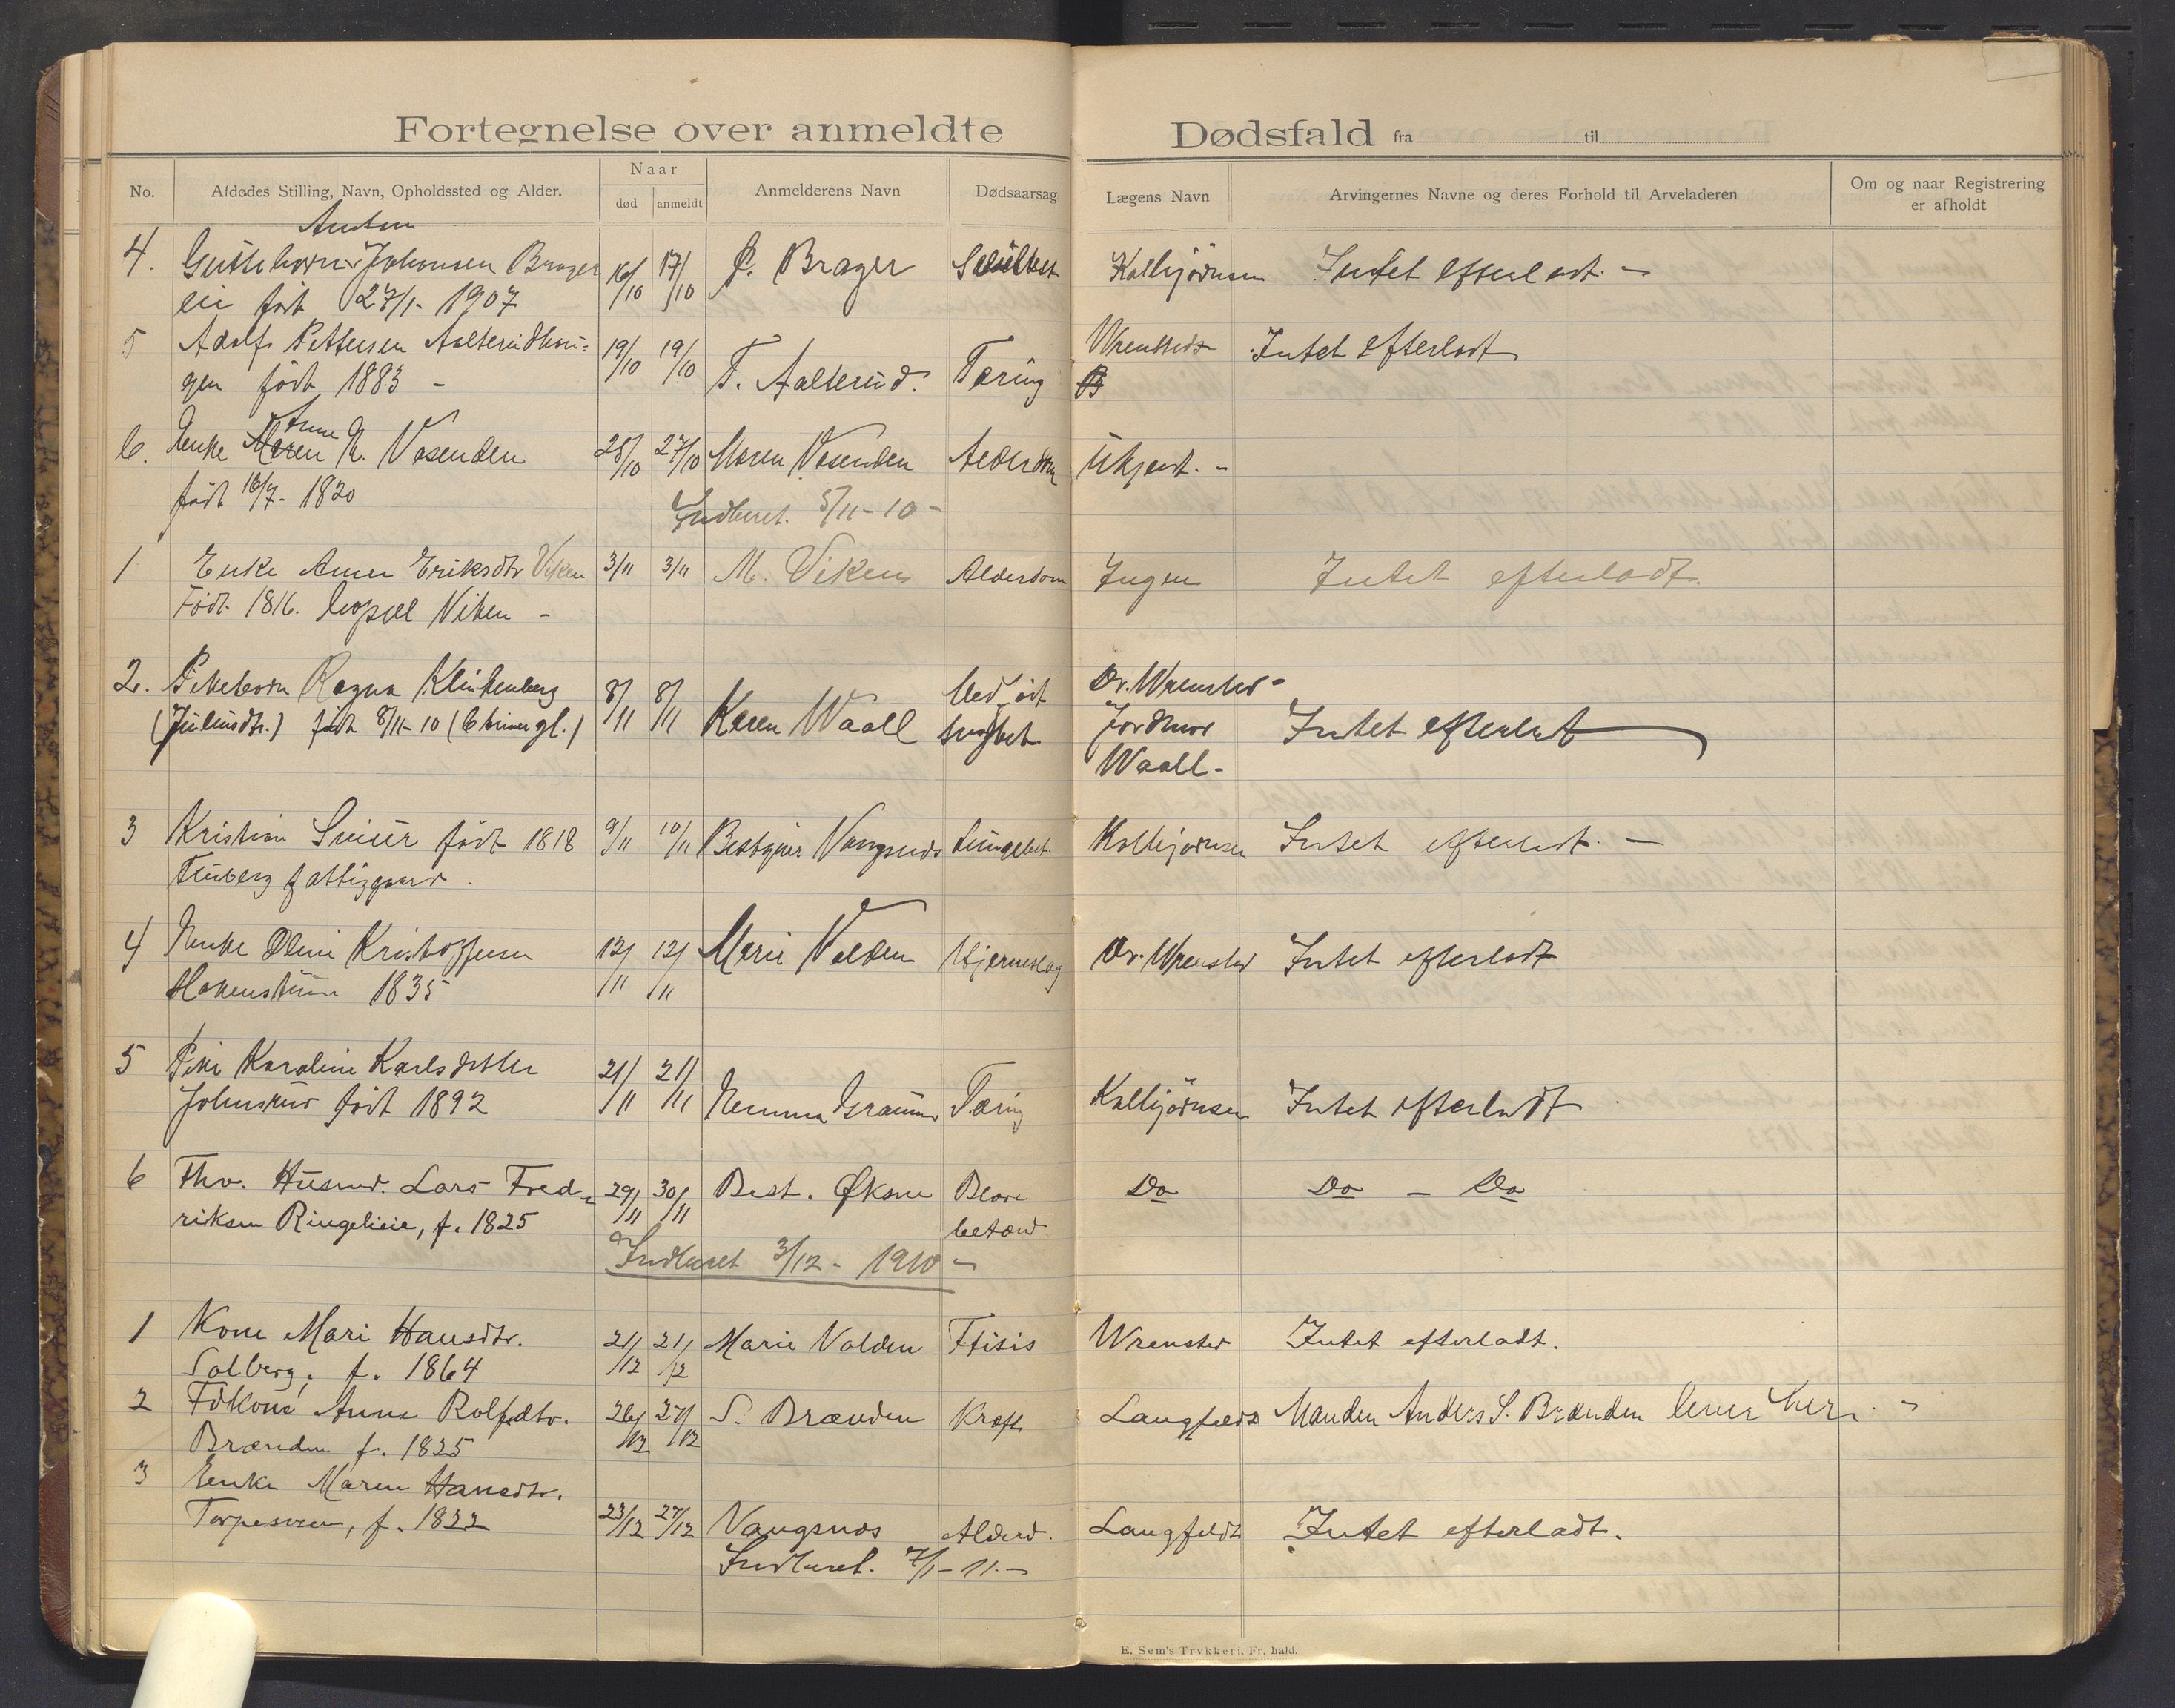 Fortegnelse over anmeldte Dødsfald fra til
No. Afdødes Stilling, Navn, Opholdssted og Alder. Naar død anmeldt Anmelderens Navn Dødsaarsag Lægens Navn Arvingernes Navne og deres Forhold til Arveladeren Om og naar Registrering er afholdt
Anton
4. Guttebarn Johansen Brager 16/10 17/10 P. Brager Kolbjørnsen Intet efterladt. -
eie født 27/1- 1907
5 Adolf Pettersen Aalterudhau= 19/10 19/10 T. Aalterud. Tæring Wrensted Intet efterladt
gen født 1883 -
Anne
6. Enke Maren N. Vasenden 28/10 27/10 Maren Vasenden Alderdom Ukjent. -
født 16/7- 1820
Indberet. 5/11- 10 -
1 Enke Anne Eriksdtr Viken 3/11 3/11 M. Viken Alderdom Ingen Intet efterladt.
Født 1816. Viken -
2. Pikebarn Ragna Klinkenberg 8/11 8/11 Karen Waall Med Dr. Wrensted -
(Juliusdtr.) født 8/11- 10 (6 timer gl.) svaghet Jordmor Intet efterladt
Waall -
3 Kristian født 1818 9/11 10/11 Bestyrer Vangsnes Kolbjørnsen Intet efterladt. -
Finberg fattiggaard.
4 Enke Oline Kristoffersen 12/11 12/11 Marie Volden Hjerneslag Dr. Wrensted Intet efterladt
1835
5 Pike Karoline Karlsdatter 21/11 21/11 Tæring Kolbjørnsen Intet efterladt
Johnsrud født 1892
6 Fhv. Husmd. Lars Fred- 29/11 30/11 Best. Øksne Blære Do Do - Do
riksen Ringelieie, f. 1825 betænd.
Indberet 3/12- 1910 -
1 Kone Mari Hansdtr. 21/12 21/12 Marie Volden Ftisis Wrensted Intet efterladt.
Solberg, f. 1864
2 Fdkone Anne Rolfsdtr. 26/12 27/12 S. Brænden Kræft Langfeldt Manden Anders S. Brænden lever her. -
Brænden f. 1825
3 Enke Maren Hansdtr.
f. 1822 23/12 27/12 Vangsnes Alderd. Langfeldt Intet efterladt.
Indberet. 7/1- 11. -
E. Sem's Trykkeri. Fr. hald.